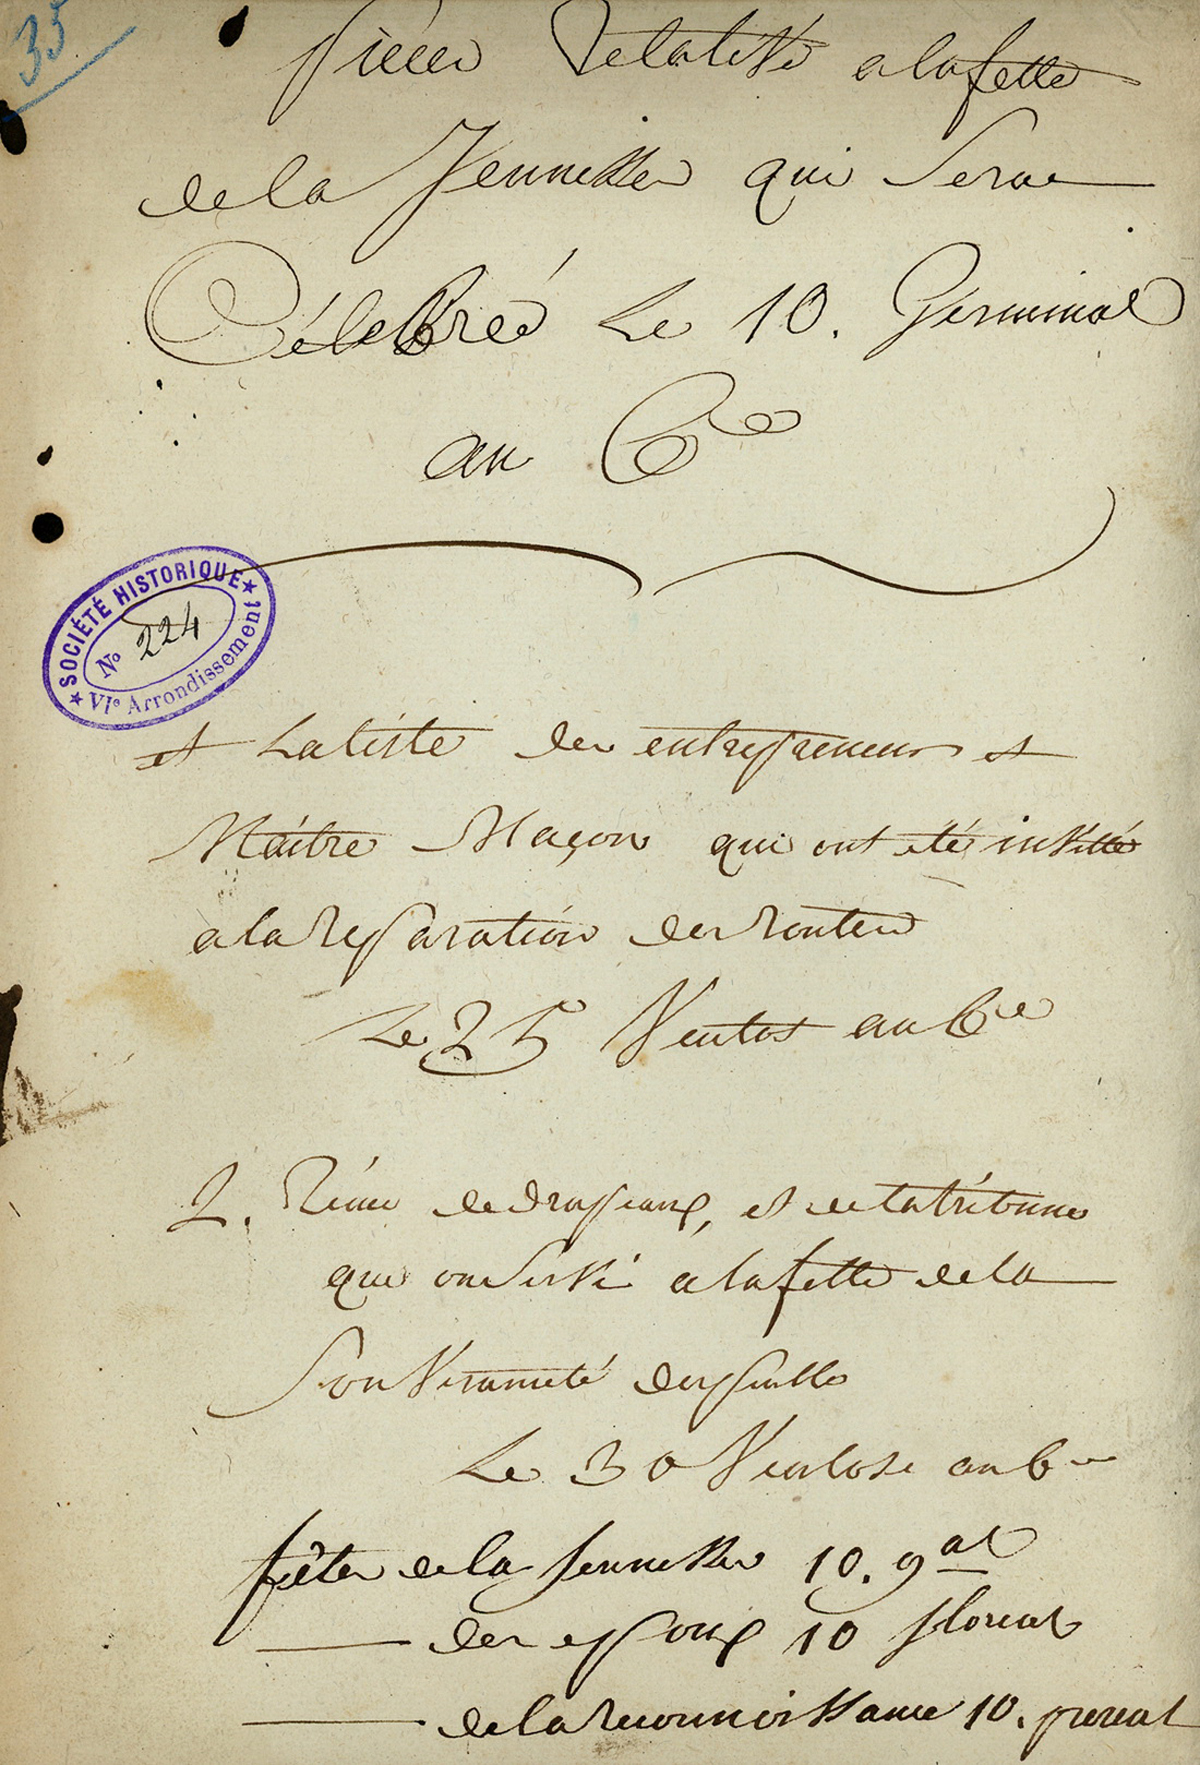 35
Piéces Relative a la fette
de la Jeunesse qui Sera
Célébreé Le 10. Germinal
an 6e
SOCIÉTÉ HISTORIQUE
No 224
VIe Arrondissement
et La Liste des entrepreneurs et
Maitre Maçon qui ont été invitté
a la reparation des routes
Le 25 Ventos an 6e
2. de drapeaux, et de la tribune
que on Servi a la fette de la
Souveraineté du peuple
Le 30 Ventose an 6e
fêtes de la Jeunesse 10. gal
des epoux 10 floreal
de la reconnoissance 10. prereal